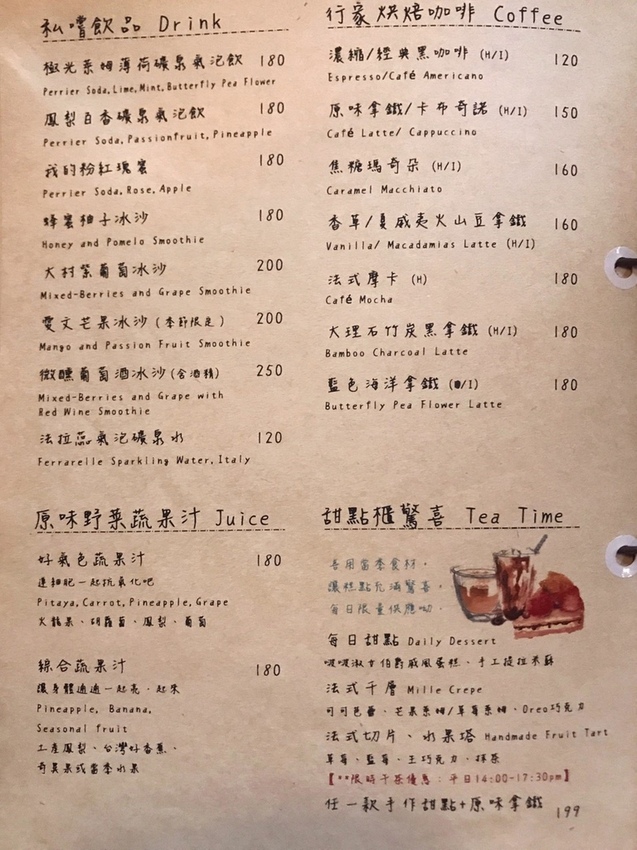 私嚐飲品 Drink
極光萊姆薄荷礦泉氣泡飲 180
Perrier Soda,Lime,Mint,Butterfly Pea Flower
鳳梨百香礦泉氣泡飲 180
Perrier Soda,Passionfruit,Pineapple
我的粉紅瑰蜜 180
Perrier Soda,Rose,Apple
蜂蜜柚子冰沙 180
Honey and Pomelo Smoothie
大村紫葡萄冰沙 200
Mixed-Berries and Grape Smoothie
愛文芒果冰沙(季節限定) 200
Mango and Passion Fruit Smoothie
微醺葡萄酒冰沙(含酒精) 250
Mixed-Berries and Grape with
Red Wine Smoothie
法拉蕊氣泡礦泉水 120
Ferrarelle Sparkling Water,Italy
原味野菜蔬果汁 Juice
好氣色蔬果汁 180
連細胞一起抗氧化吧
Pitaya,Carrot,Pineapple,Grape
火龍果、胡蘿蔔、鳳梨、葡萄
綜合蔬果汁 180
讓身體通通一起亮、起來
Pineapple, Banana,
Seasonal fruit
土產鳳梨、台灣好香蕉、
奇異果或當季水果
行家烘焙咖啡 Coffee
濃縮/經典黑咖啡 (H/I) 120
Espresso/Café Americano
原味拿鐵/卡布奇諾 (H/I) 150
Café Latte/ Cappuccino
焦糖瑪奇朵 (H/I) 160
Caramel Macchiato
香草/夏威夷火山豆拿鐵 160
Vanilla/ Macadamias Latte (H/I)
法式摩卡 (H) 180
Café Mocha
大理石竹炭黑拿鐵 (H/I) 180
Bamboo Charcoal Latte
藍色海洋拿鐵 (H/I) 180
Butterfly Pea Flower Latte
甜點櫃驚喜 Tea Time
善用當季食材，
讓糕點充滿驚喜，
每日限量供應呦。
每日甜點 Daily Dessert
啵啵淑女伯爵戚風蛋糕、手工提拉米蘇
法式千層 Mille Crepe
可可芭蕾、芒果萊姆/草莓萊姆、Oreo巧克力
法式切片、水果塔 Handmade Fruit Tart
草莓、藍莓、生巧克力、抹茶
【**限時下茶優惠：平日14:00-17:30pm】
任一款手作甜點+原味拿鐵 199